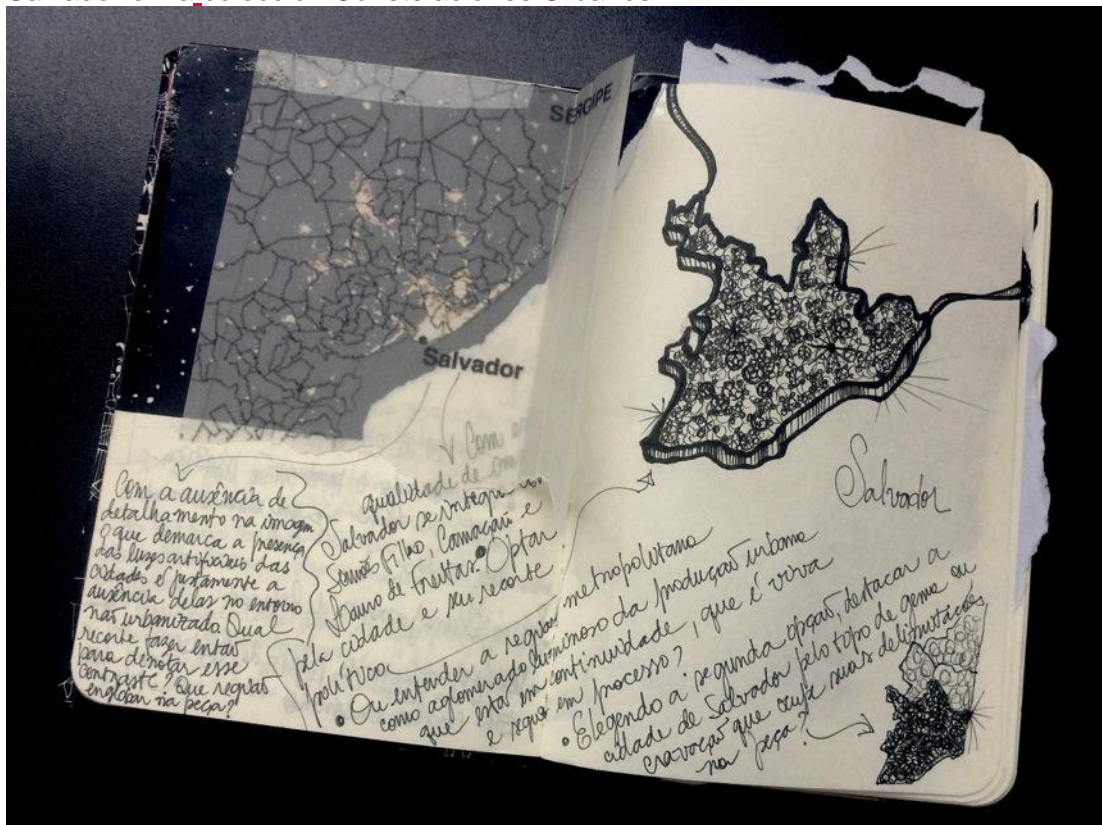 SERGIPE
Salvador
Com a ausência de
detalhamento na imagem
o que demarca a presença
das luzes artificiais das
cidades é justamente a
ausência delas no entorno
não urbanizado. Qual
recorte fazer então
para denotar esse
contraste? Que região
englobar na peça?
Com a
qualidade de
Salvador se
Simões Filho, Camaçari e
Lauro de Freitas. Optar
pela cidade e seu recorte
político
• Ou entender a região metropolitana
como aglomerado luminoso da produção urbana
que está em continuidade, que é viva
e segue em processo?
• Elegendo a segunda opção, destacar a
cidade de Salvador pelo tipo de gema ou
cravação que ocupe suas delimitações
na peça?
Salvador